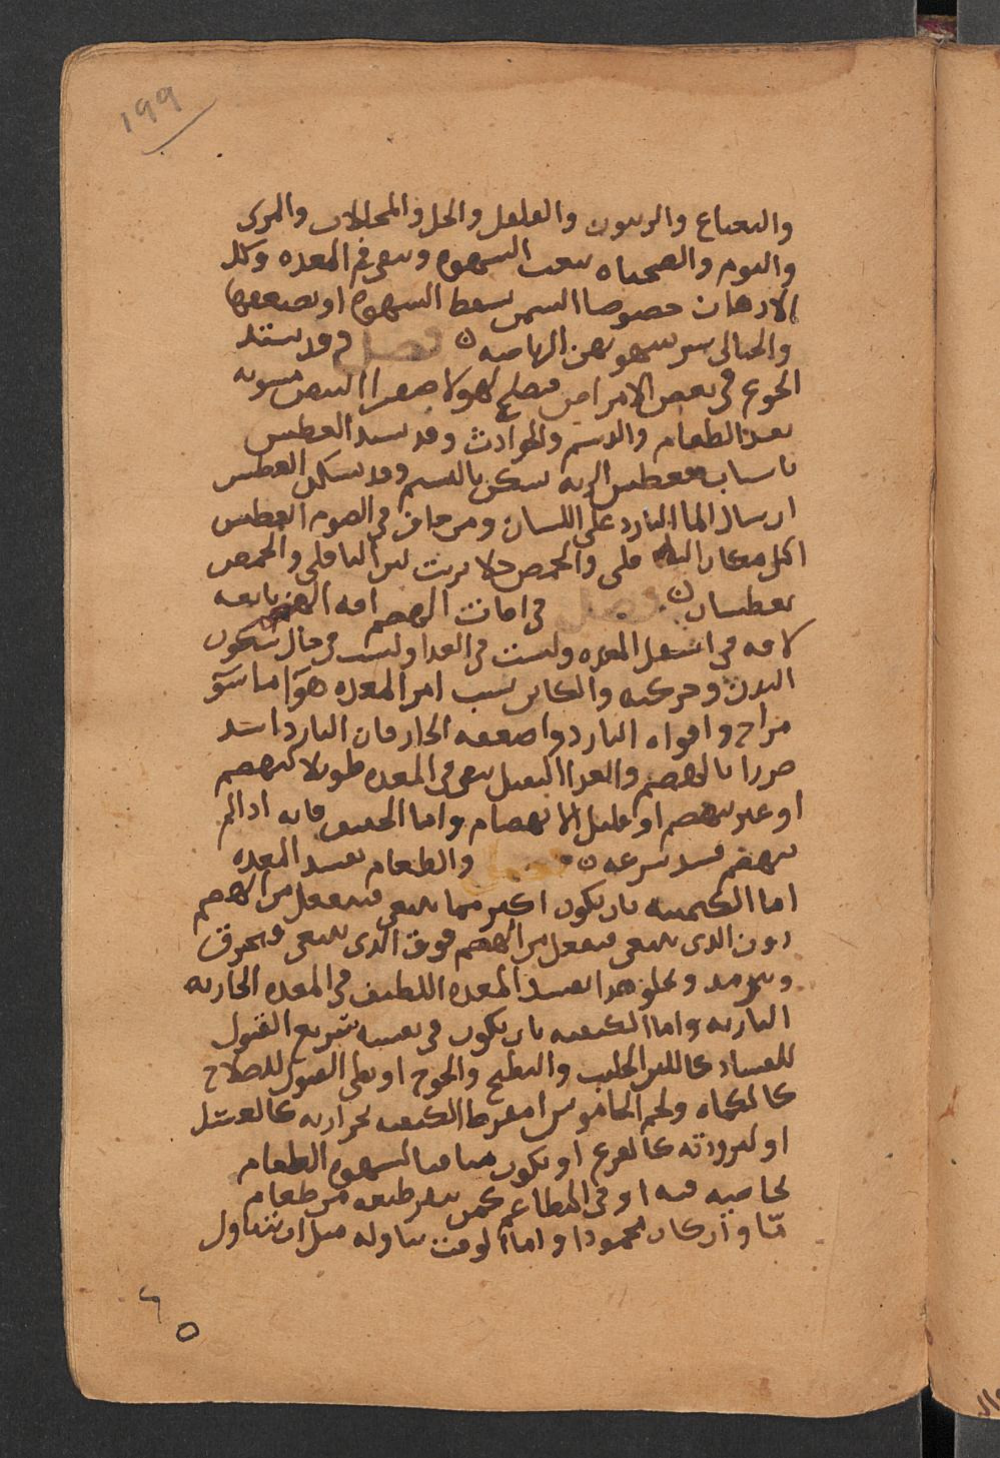 ١٩٩
والنعناع والزيتون والفلفل والخل والمخللات والمرى
والثوم والصحناه يبعث الشهوه ويقوى فم المعده وكل
الادهان خصوصا السمن يسقط الشهوه او يضعفها
والحبالى يشتهون هن الهامضه ن فصل وقد يشتد
الجوع فى بعض الامراض فيصلح لهولا صفرا البيض مشويه
بعد الطعام والدسم والهوادث وقد يشتد العطش
باسباب فعطش الريه يسكن بالنسيم وقد يسكن العطش
ارسال الما البارد على اللسان ومن خاف فى الصوم العطش
اكل مكان الباقلى والحمص خلا بزيت لان الباقلى والحمص
يعطشان ن فصل فى افات الهضم افه الهضم تابعه
لافه فى اسفل المعده وليست فى الغدا وليست فى حال سكون
البدن وحركته والكاين بسبب امر المعده هو اما سو
مزاج واقواه البارد واضعفه الحار فان البارد اشد
ضررا بالهضم والغدا الثقيل يبقى فى المعده طويلا لينهضم
او غير منهضم او قليل الانهضام واما الخفيف فانه اذا لم
ينهضم فسد سرعه ن فصل والطعام يفسد المعده
اما الكميته بان يكون اكثر مما ينبغى فينفعل من الهضم
دون الذى ينبغى فينفعل من الهضم فوق الذى ينبغى ويحرق
ويترمد وبخلو هذا يفسد المعده اللطيف فى المعده الحاريه
الناريه واما الكيفيه بان يكون فى نفسه سريع القبول
للفساد كاللبن الحليب والبطيخ والخوخ او بطى القبول للصلاح
كالكماه ولحم الجاموس او مفرط الكيفيه لحرارته كالعسل
او لبرودته كالقرع او يكون منافيا لشهوه الطعام
لخاصيه فيه او فى الطاعم كمن ينفر طبعه من طعام
مّا وان كان محمودا واما الوقت تناوله مثل ان تناول